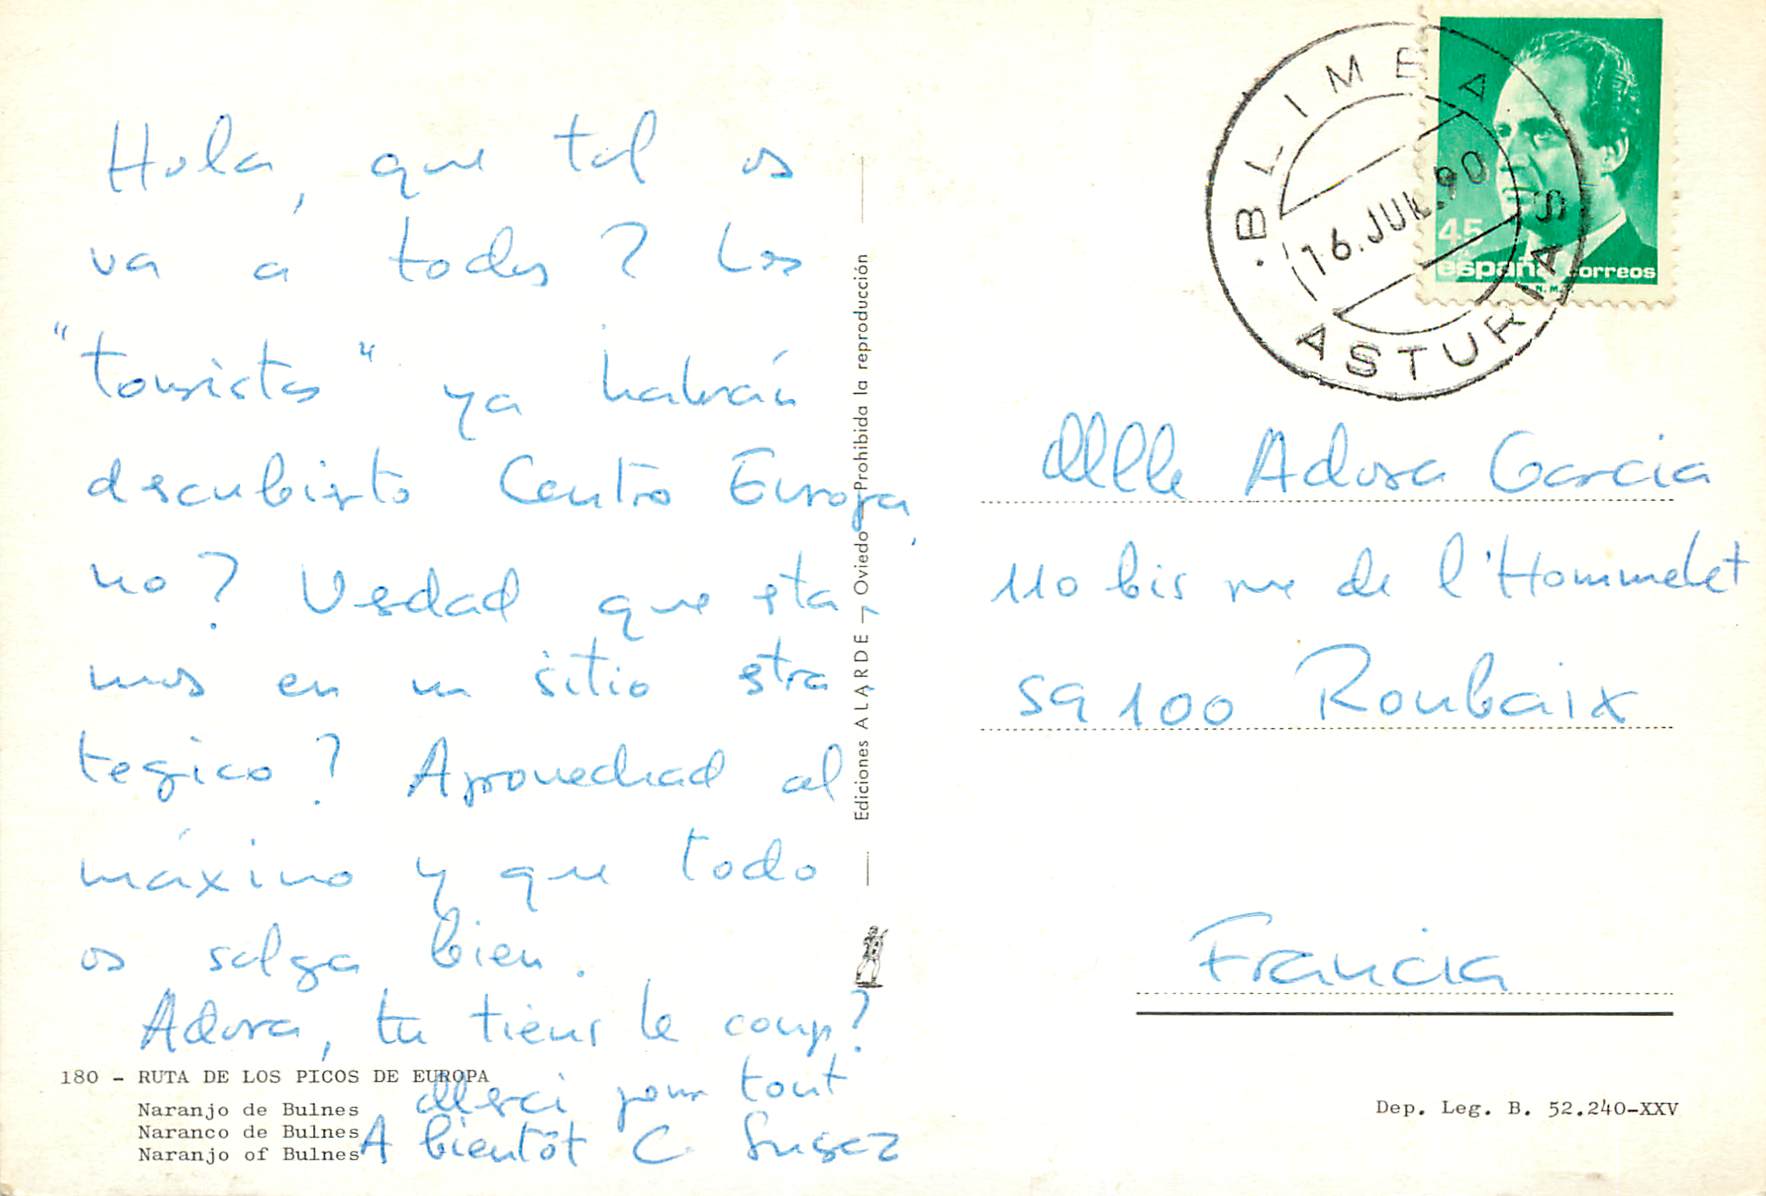 Hola, que tal os
va a todos? Los
"touristas" ya habrán
descubierto Centro Europa,
no? Verdad que esta-
mos en un sitio estra-
tegico? Aprovechad al
máximo y que todo
os salga bien.
Adora, tu tiens le coup?
Merci pour tout
A bientôt C.
180 - RUTA DE LOS PICOS DE EUROPA
Naranjo de Bulnes
Naranco de Bulnes
Naranjo of Bulnes
Ediciones ALARDE – Oviedo Prohibida la reproducción
BLIMEA
16.JUL.90
ASTURIAS
45
españa correos
Mlle Adora Garcia
110 bis rue de l'Hommelet
59100 Roubaix
Francia
Dep. Leg. B. 52.240-XXV